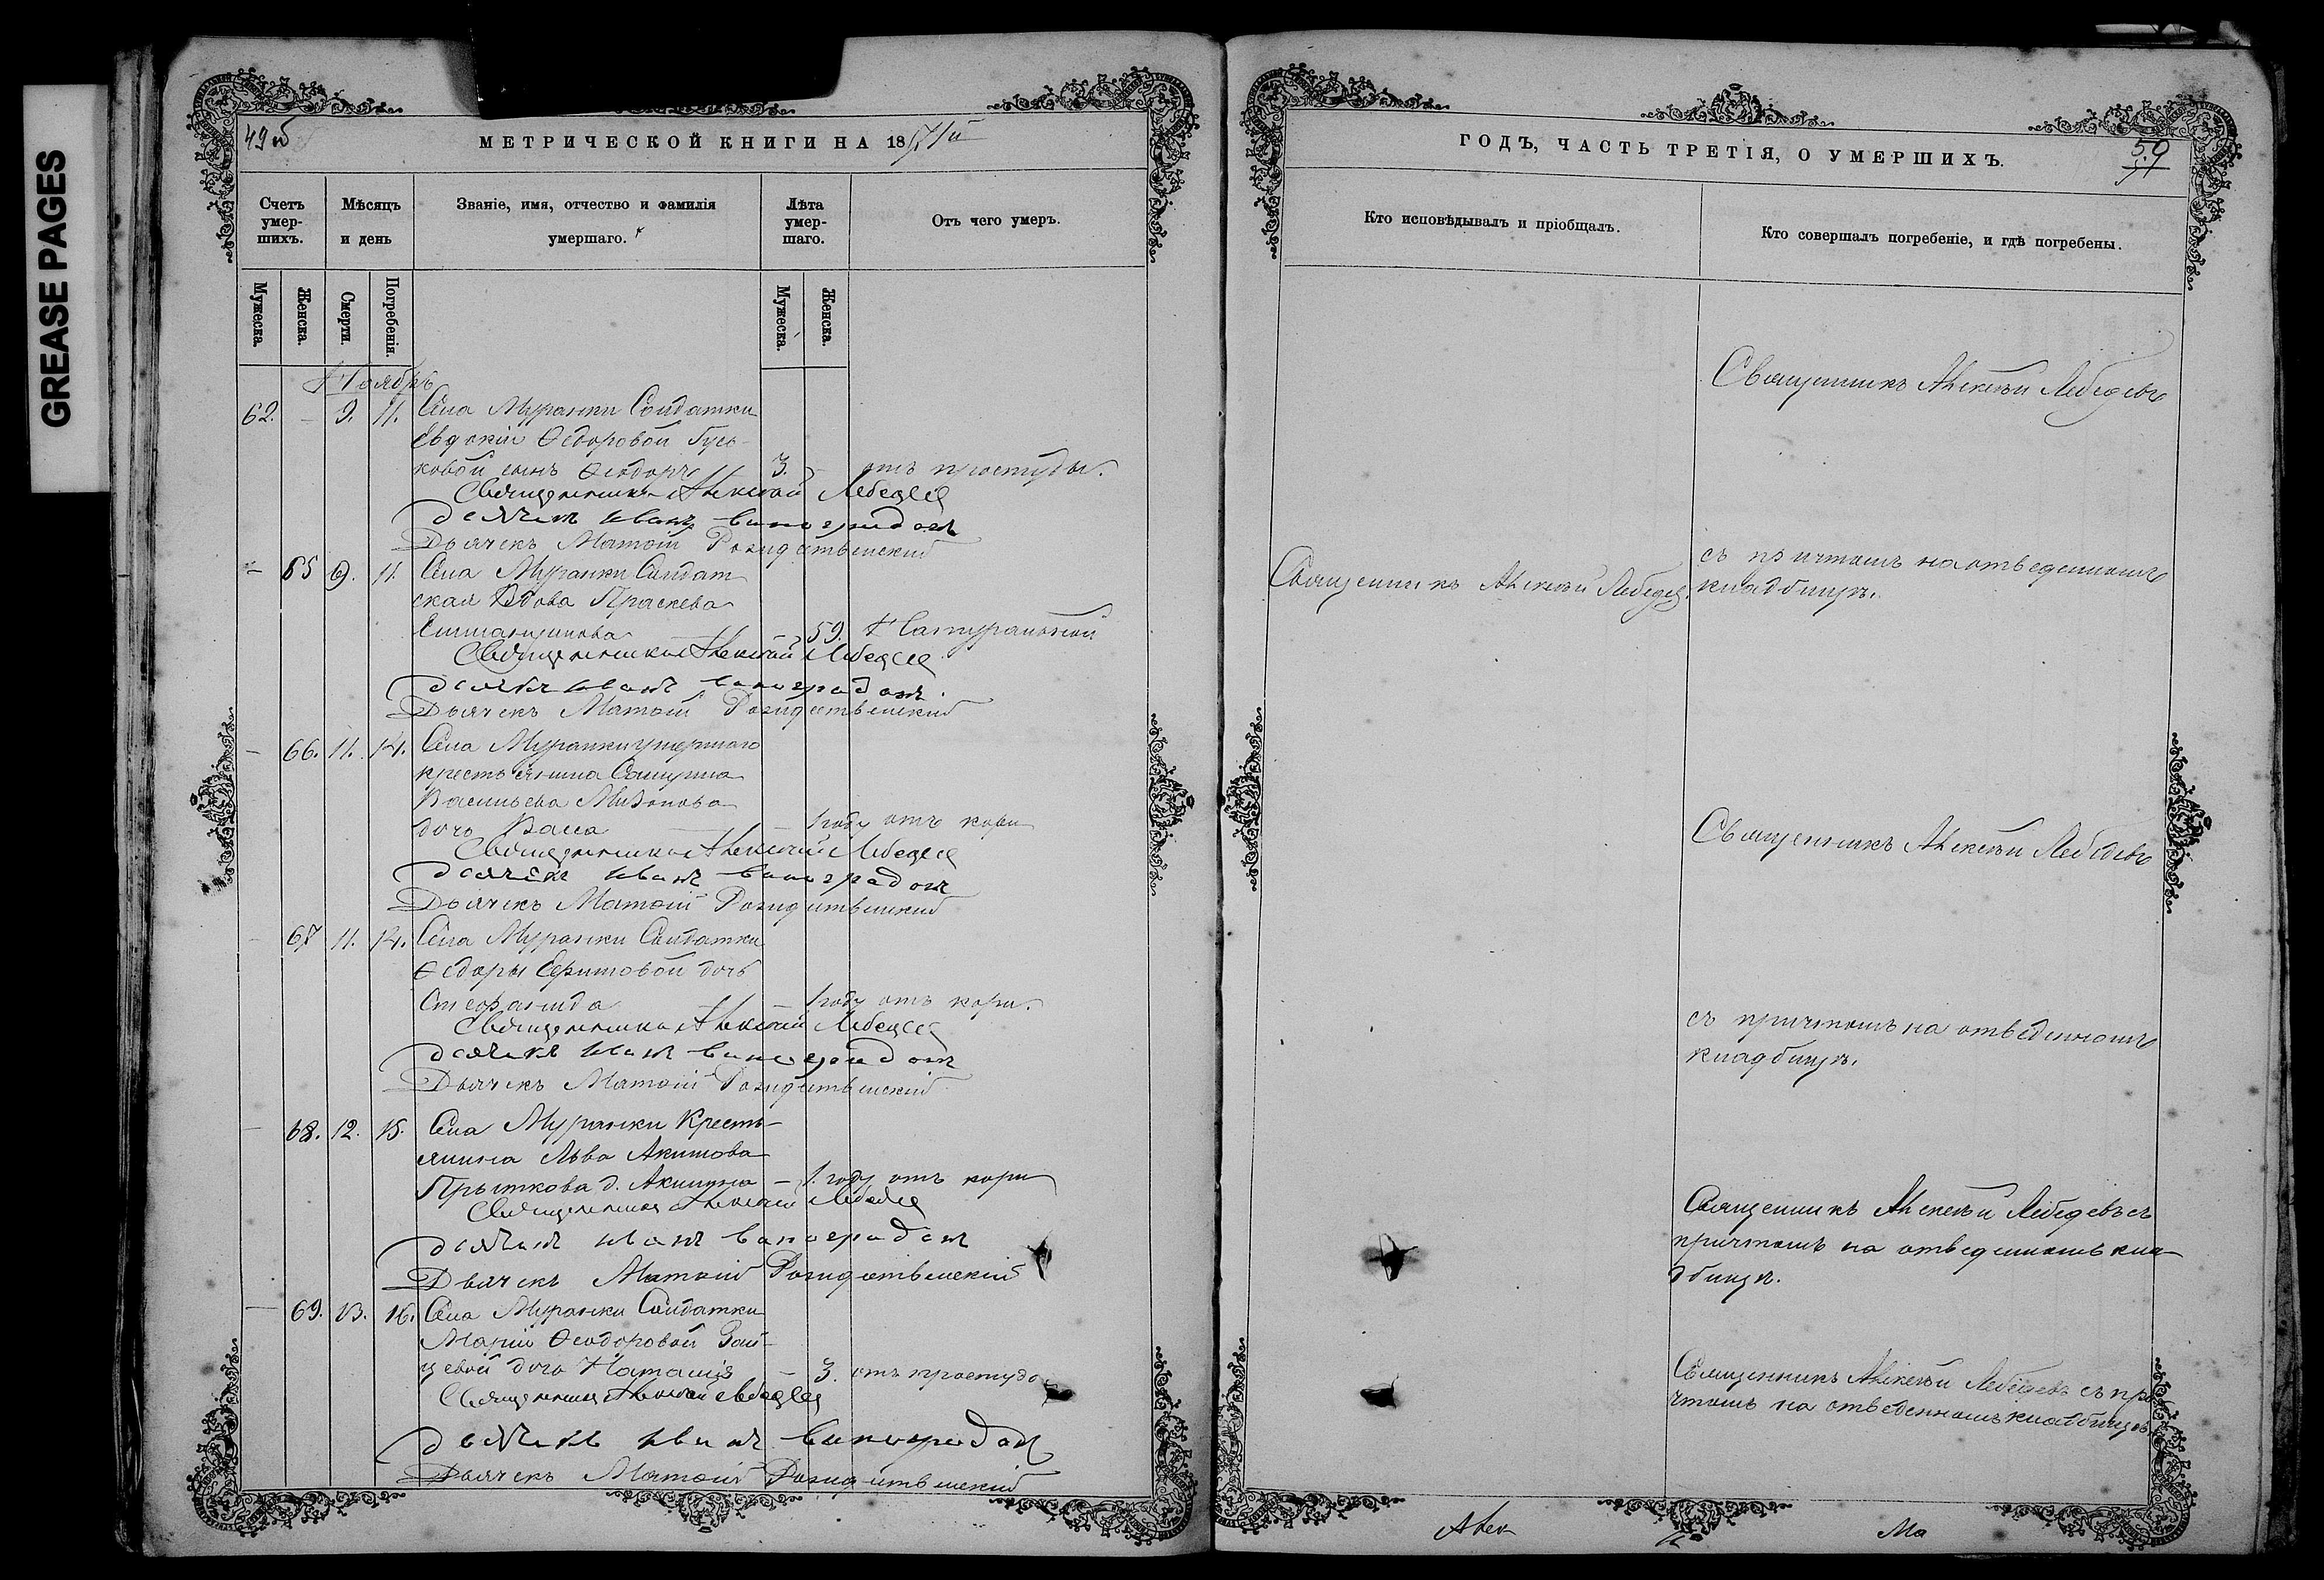 GREASE PAGES
49 об
МЕТРИЧЕСКОЙ КНИГИ НА 1871й
Счетъ умер-шихъ.
Мѣсяцъ и день
Званіе, имя, отчество и фамилія умершаго.
Лѣта умер-шаго.
Отъ чего умеръ.
Мужеска.
Женска.
Смерти.
Погребенія.
Мужеска.
Женска.
Ноябрь
62. – 9. 11. Села Муранки Солдатки
Евдокіи Ѳедоровой Гусь-
ковой сынъ Ѳеодоръ 3. – отъ простуды.
Священникъ Алексѣй Лебедев
дьячекъ иванъ виноградовъ
Дьячекъ Матѳій Рождественскій
– 65 9. 11. Села Муранки Солдат
ская Вдова Праскева
59. Натуральной
Священникъ Алексѣй Лебедев
дьячекъ иванъ виноградовъ
Дьячекъ Матѳій Рождественскій
– 66. 11. 14. Села Муранки умершаго
крестьянина
Васильева
дочь – 1 году отъ кори
Священникъ Алексѣй Лебедев
дьячекъ иванъ виноградовъ
Дьячекъ Матѳій Рождественскій
– 67 11. 14. Села Муранки Солдатки
Ѳедоры Ефимовой дочь
Стефанида – 1 году отъ кори.
Священникъ Алексѣй Лебедев
дьячекъ иванъ виноградовъ
Дьячекъ Матѳій Рождественскій
– 68. 12. 15. Села Муранки Кресть-
янина Льва Акимова
Прыткова д. Акилина – 1. году отъ кори
Священникъ Алексѣй Лебедев
дьячекъ иванъ виноградовъ
Дьячекъ Матѳій Рождественскій
– 69. 13. 16. Села Муранки Солдатки
Маріи Ѳеодоровой Зай-
цевой дочь Наталія – 3. отъ простуды
Священникъ Алексѣй Лебедев
дьячекъ иванъ виноградовъ
Дьячекъ Матѳій Рождественскій
ГОДЪ, ЧАСТЬ ТРЕТІЯ, О УМЕРШИХЪ.
50
Кто исповѣдывалъ и пріобщалъ.
Кто совершалъ погребеніе, и гдѣ погребены.
Священникъ Алексѣй Лебедевъ
съ причтомъ на отведенномъ
Священникъ Алексѣй Лебедев. кладбищѣ.
Священникъ Алексѣй Лебедевъ
съ причтомъ на отведенномъ
кладбищѣ.
Священникъ Алексѣй Лебедевъ съ
причтомъ на отведенномъ кла-
дбищѣ.
Священникъ Алексѣй Лебедевъ съ при
чтомъ на отведенномъ кладбищѣ.
Алек
Ма